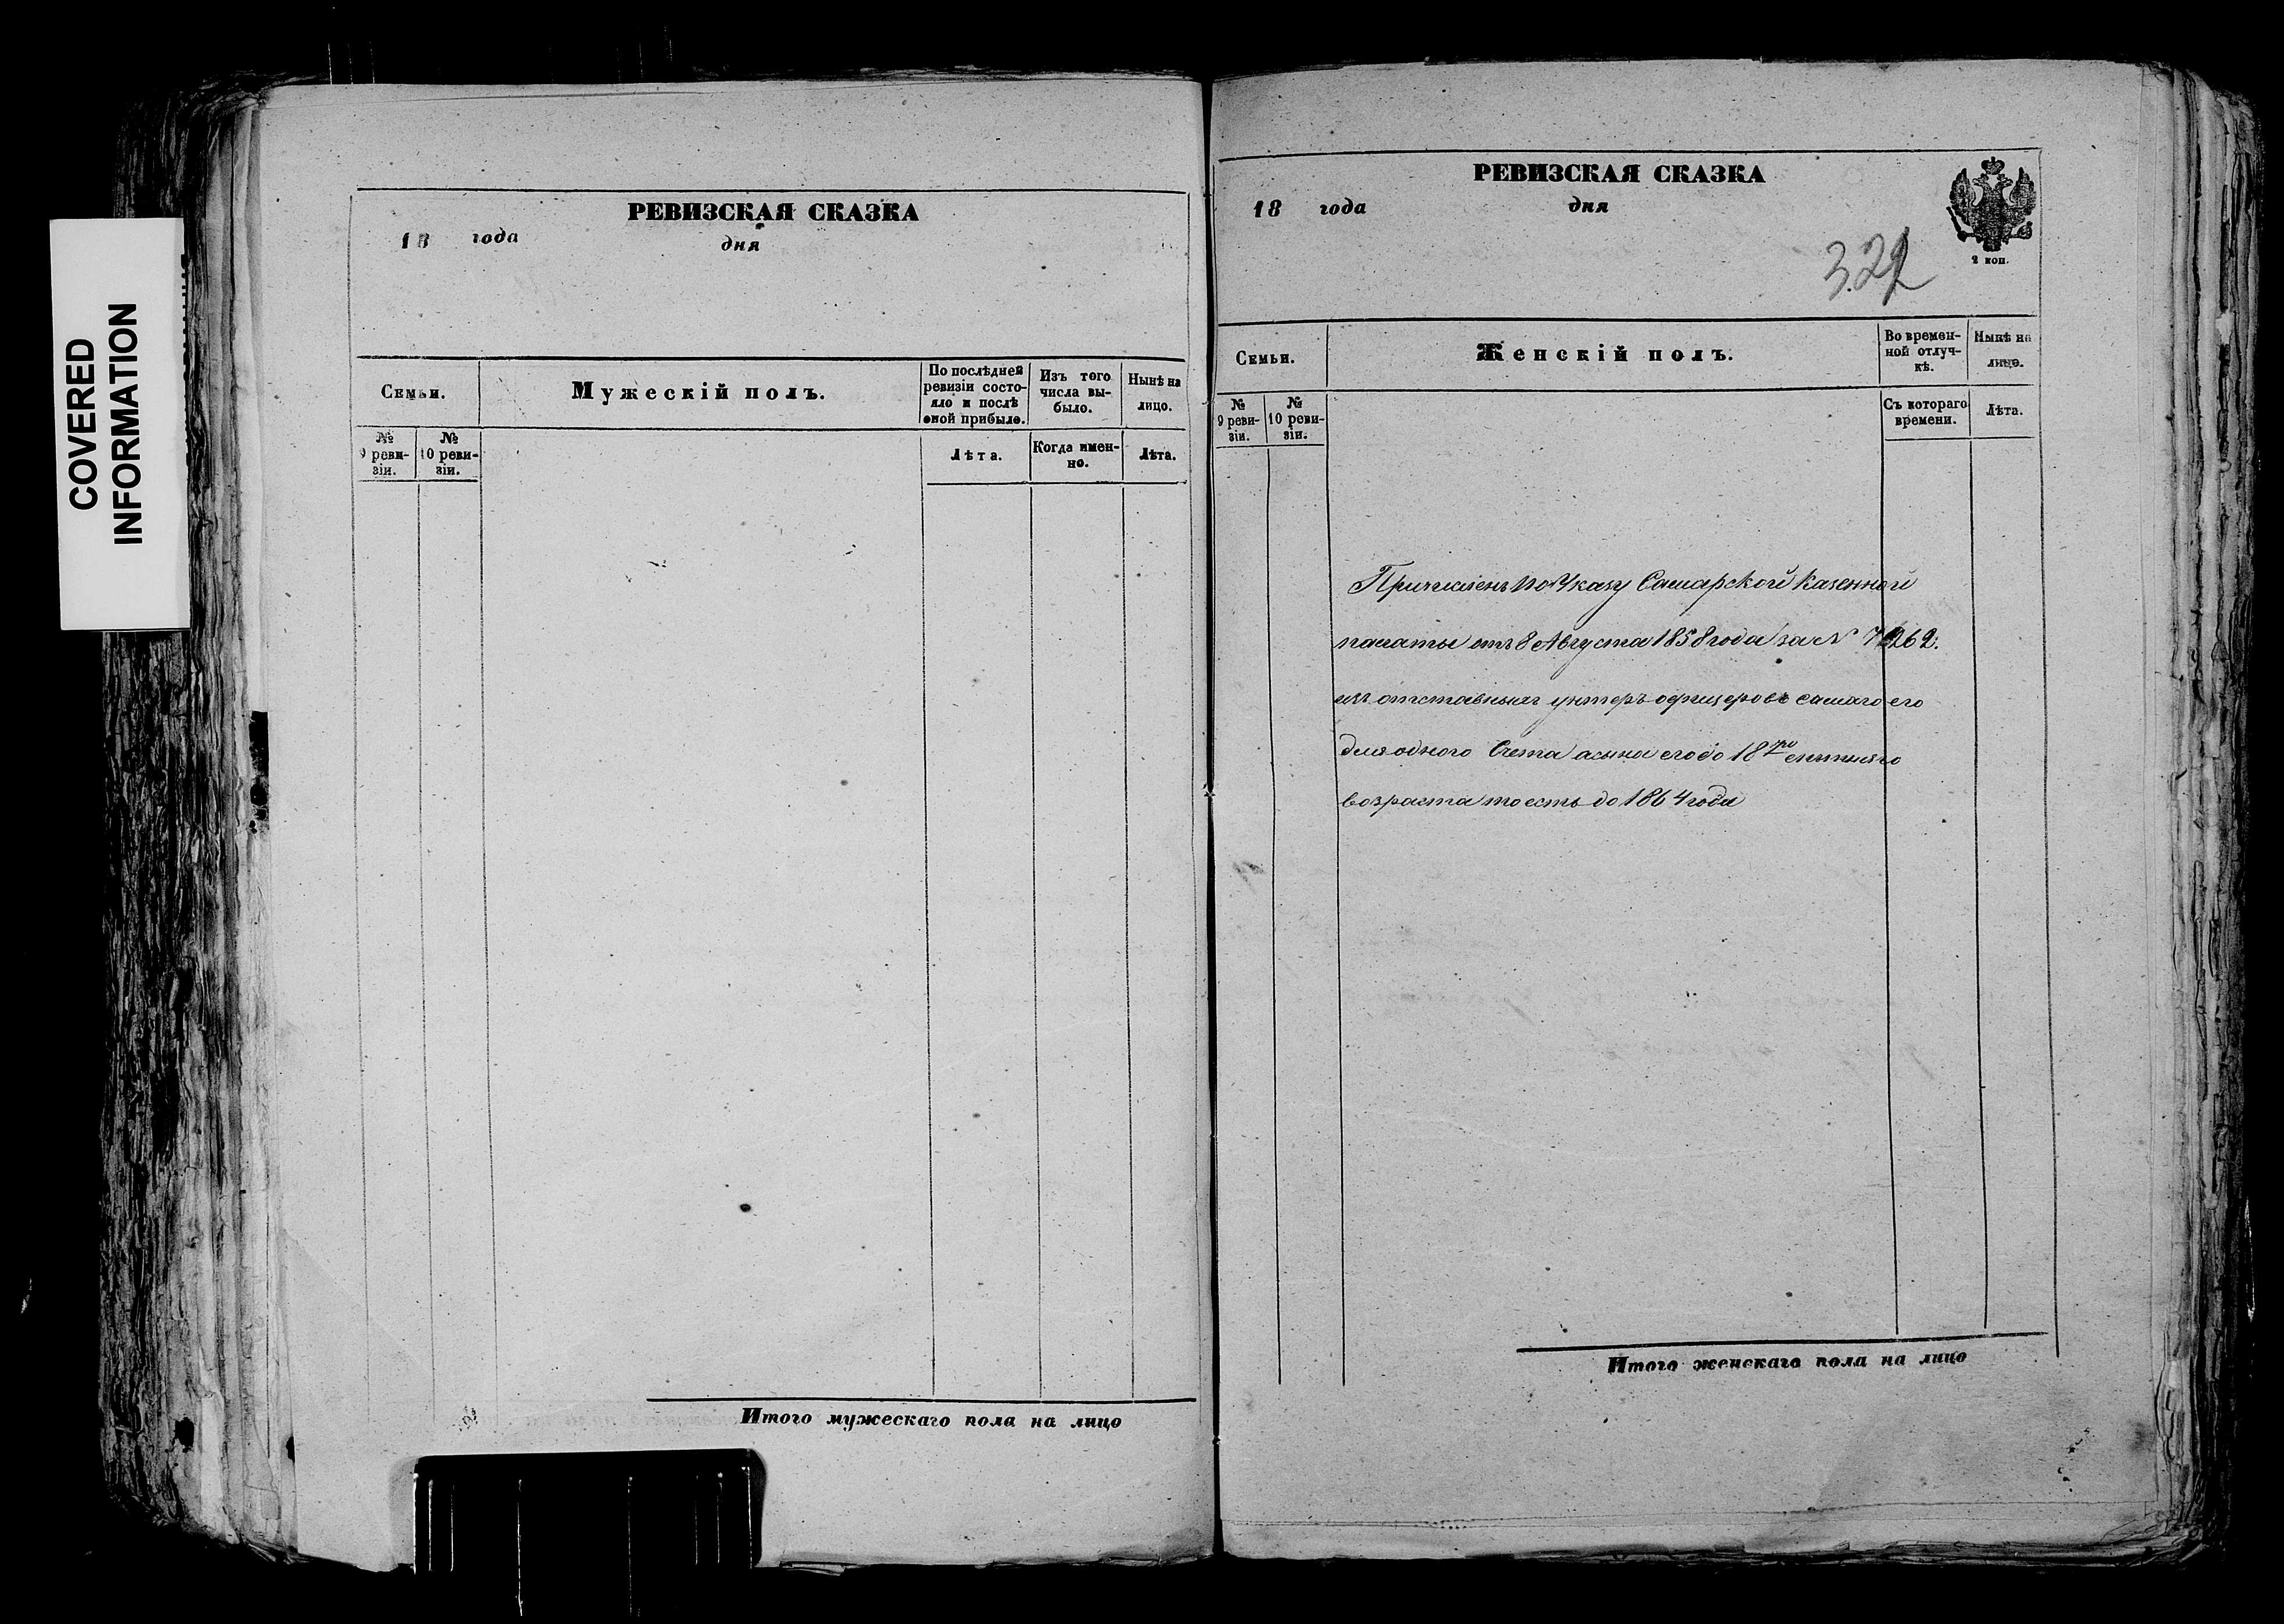 COVERED
INFORMATION
РЕВИЗСКАЯ СКАЗКА
18 года дня
Семьи.
Мужескій полъ.
По послѣдней ревизіи состояло и послѣ оной прибыло.
Изъ того числа выбыло.
Нынѣ на лицо.
№ 9 ревизіи.
№ 10 ревизіи.
Лѣта.
Когда именно.
Лѣта.
Итого мужескаго пола на лицо
РЕВИЗСКАЯ СКАЗКА
18 года дня
2 коп.
322
Семьи.
Женскій полъ.
Во временной отлучкѣ.
Нынѣ на лицо.
№ 9 ревизіи.
№ 10 ревизіи.
Съ котораго времени.
Лѣта.
Причисленъ по Указу Самарской Казенной
палаты отъ 8 Августа 1858 года за № 7262.
изъ отставныхъ унтеръ офицеровъ самаго его
для одного Счета а сына его до 18ти лѣтняго
возраста то есть до 1864 года
Итого женскаго пола на лицо